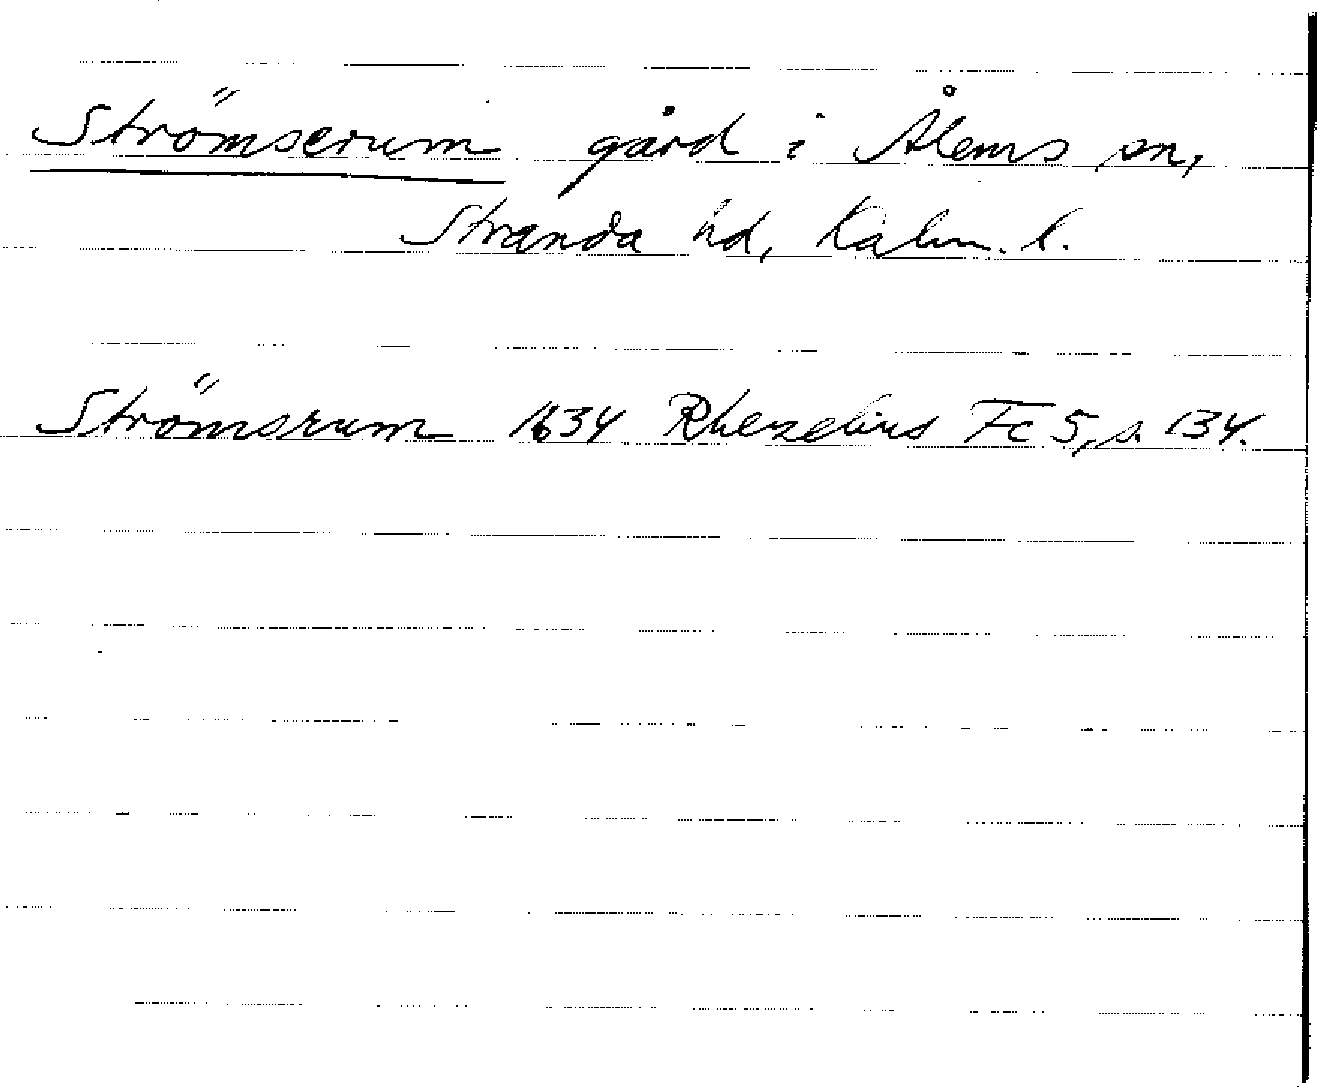 Strömserum gård i Ålems sn,
Stranda hd, Kalm. l.
Strömsrum 1634 Rhezelius Fc 5, s. 134.